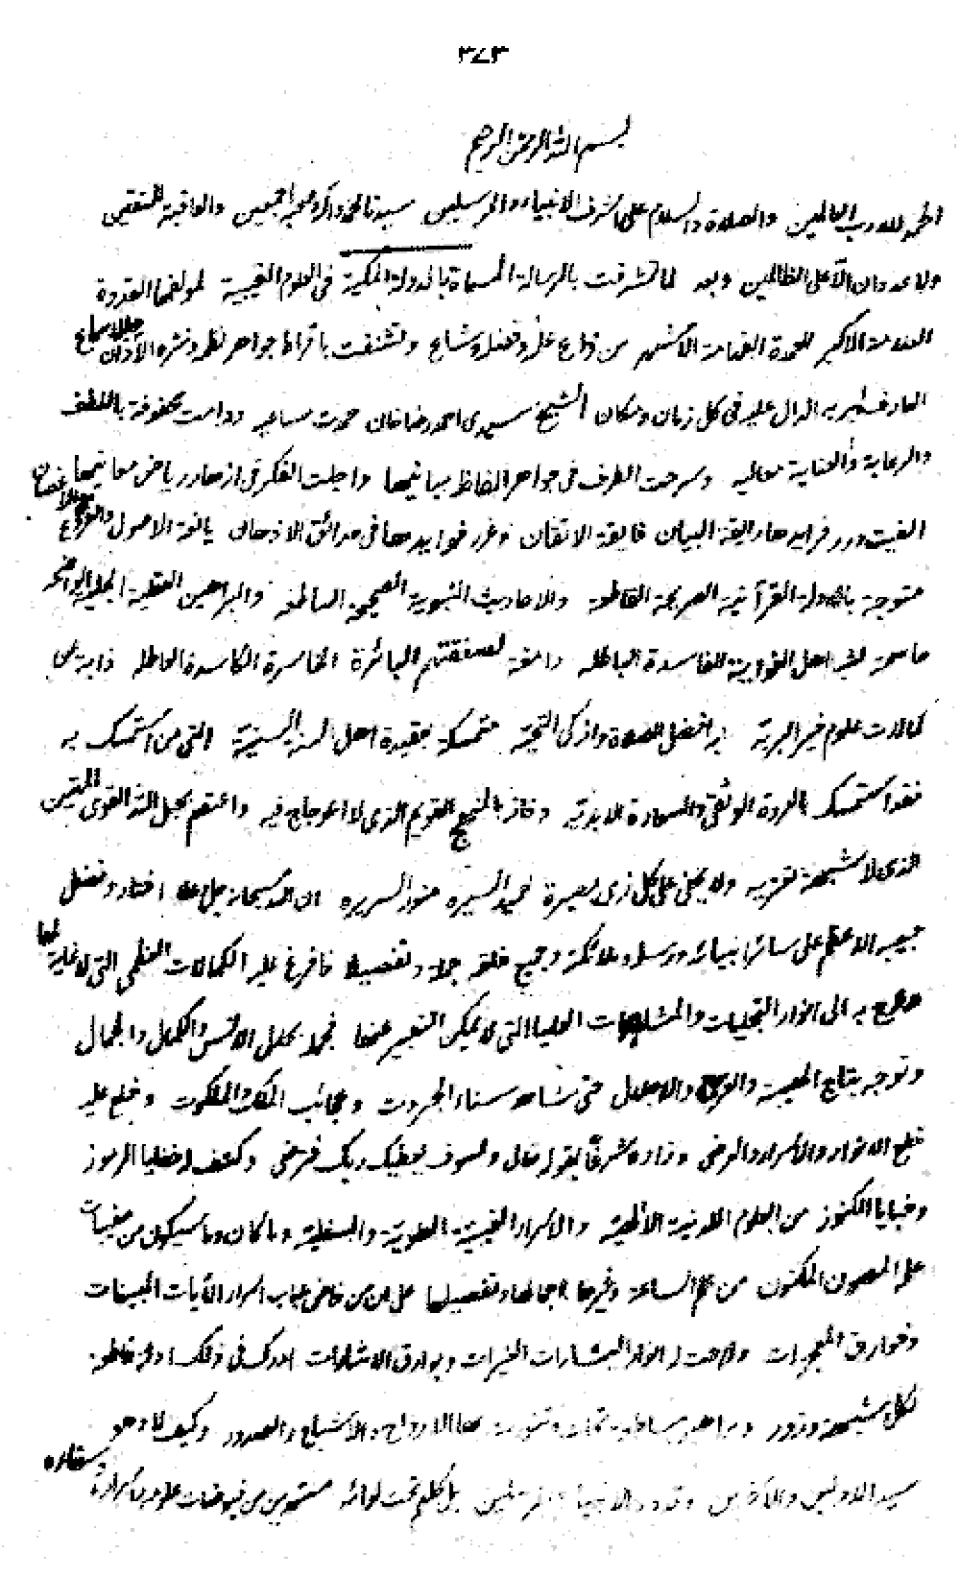 ٣٧٣
بسم الله الرحمن الرحيم
الحمد لله رب العالمين والصلاة والسلام على اشرف الانبياء والمرسلين سيدنا محمد وآله وصحبه اجمعين والعاقبة للمتقين
ولا عدوان الا على الظالمين وبعد لما تشرفت بالرسالة المسماة بالدولة المكية فى العلوم الغيبية لمولفها القدوة
العلامة الاكبر العمدة الفهامة الاشهر من ذاع علمه وفضله وشاع وتشنفت باقراط جواهر نظمه ونثره الآذان والاسماع
العارف بربه الدال عليه فى كل زمان ومكان الشيخ سيدى احمد رضا خان حمدت مساعيه ودامت محفوفة باللطف
والرعاية والعناية معاليه وسرحت الطرف فى جواهر الفاظ مبانيها واجلت الفكر فى ازهار رياض معانيها
الفيت درر فرايدها رايقة البيان فايقة الاتقان وغرر فوايدها فى حدائق الاذهان يانعة الاصول والفروع والاغصان
متوجة بالادلة القرآنية الصريحة القاطعة والاحاديث النبوية الصحيحة الساطعة والبراهين العقلية الجلية الواضحة
ماحية لشبه اهل الغواية الفاسدة الباطلة دامغة لصفقتهم البائرة الخاسرة الكاسدة العاطلة ذابة عن
كمالات علوم خير البرية عليه افضل الصلاة وازكى التحية متمسكة بعقيدة اهل السنة السنية التى من استمسك به
فقد استمسك بالعروة الوثقى والسعادة الابدية وفاز بالمنهج القويم الذى لا اعوجاج فيه واعتصم بحبل الله القوى المتين
الذى لا شبهة تعتريه ولا يخفى على كل ذى بصيرة حميد السيره منور السريره ان الله سبحانه جل علاه اختار وفضل
حبيبه الاعظم على سائر انبيائه ورسله وملائكته وجميع خلقه جملة وتفصيلا فافرغ عليه الكمالات العظمى التى لا غاية لها
وعرج به الى انوار التجليات والمشاهدات العليا التى لا يمكن التعبير عنها فجمله بحلل الانس والكمال والجمال
وتوجه بتاج الهيبة والاجلال حتى شاهد سناء الجبروت وعجائب الملك والملكوت وخلع عليه
خلع الانوار والاسرار والرضى وزاده شرفا بقوله تعالى ولسوف يعطيك ربك فترضى وكشف له خفايا الرموز
وخبايا الكنوز من العلوم اللدنية الالهية والاسرار الغيبية العلوية والسفلية وما كان وما سيكون من مغيبات
علمه المصون المكنون من علم الساعة وغيرها اجمالها وتفصيلها على ان من خاض عباب اسرار الآيات المبينات
وخوارق المعجزات ولاحت له انوار البشارات النيرات وبوارق الاشارات ادرك فى ذلك ادلة قاطعة
لكل شبهة وزور وبراهين ساطعة الارواح والاشباح والصدور وكيف لا وهو
سيد الاولين والآخرين وقدوة الانبياء والمرسلين بل كلهم تحت لوائه مستمدين من فيوضات علومه واسراره